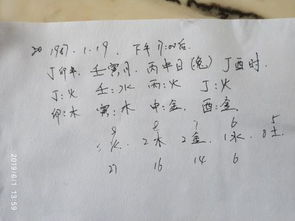 20 1987.1.19. 下午17:00后
丁卯年. 壬寅月. 丙申日(兔) 丁酉时.
丁:火 壬:水 丙:火 丁:火
卯:木 寅:木 申:金. 酉:金.
9 8 7 6 5
火. 2木 2金. 1水. 0土.
27 16 14 6
2019/6/1 13:59